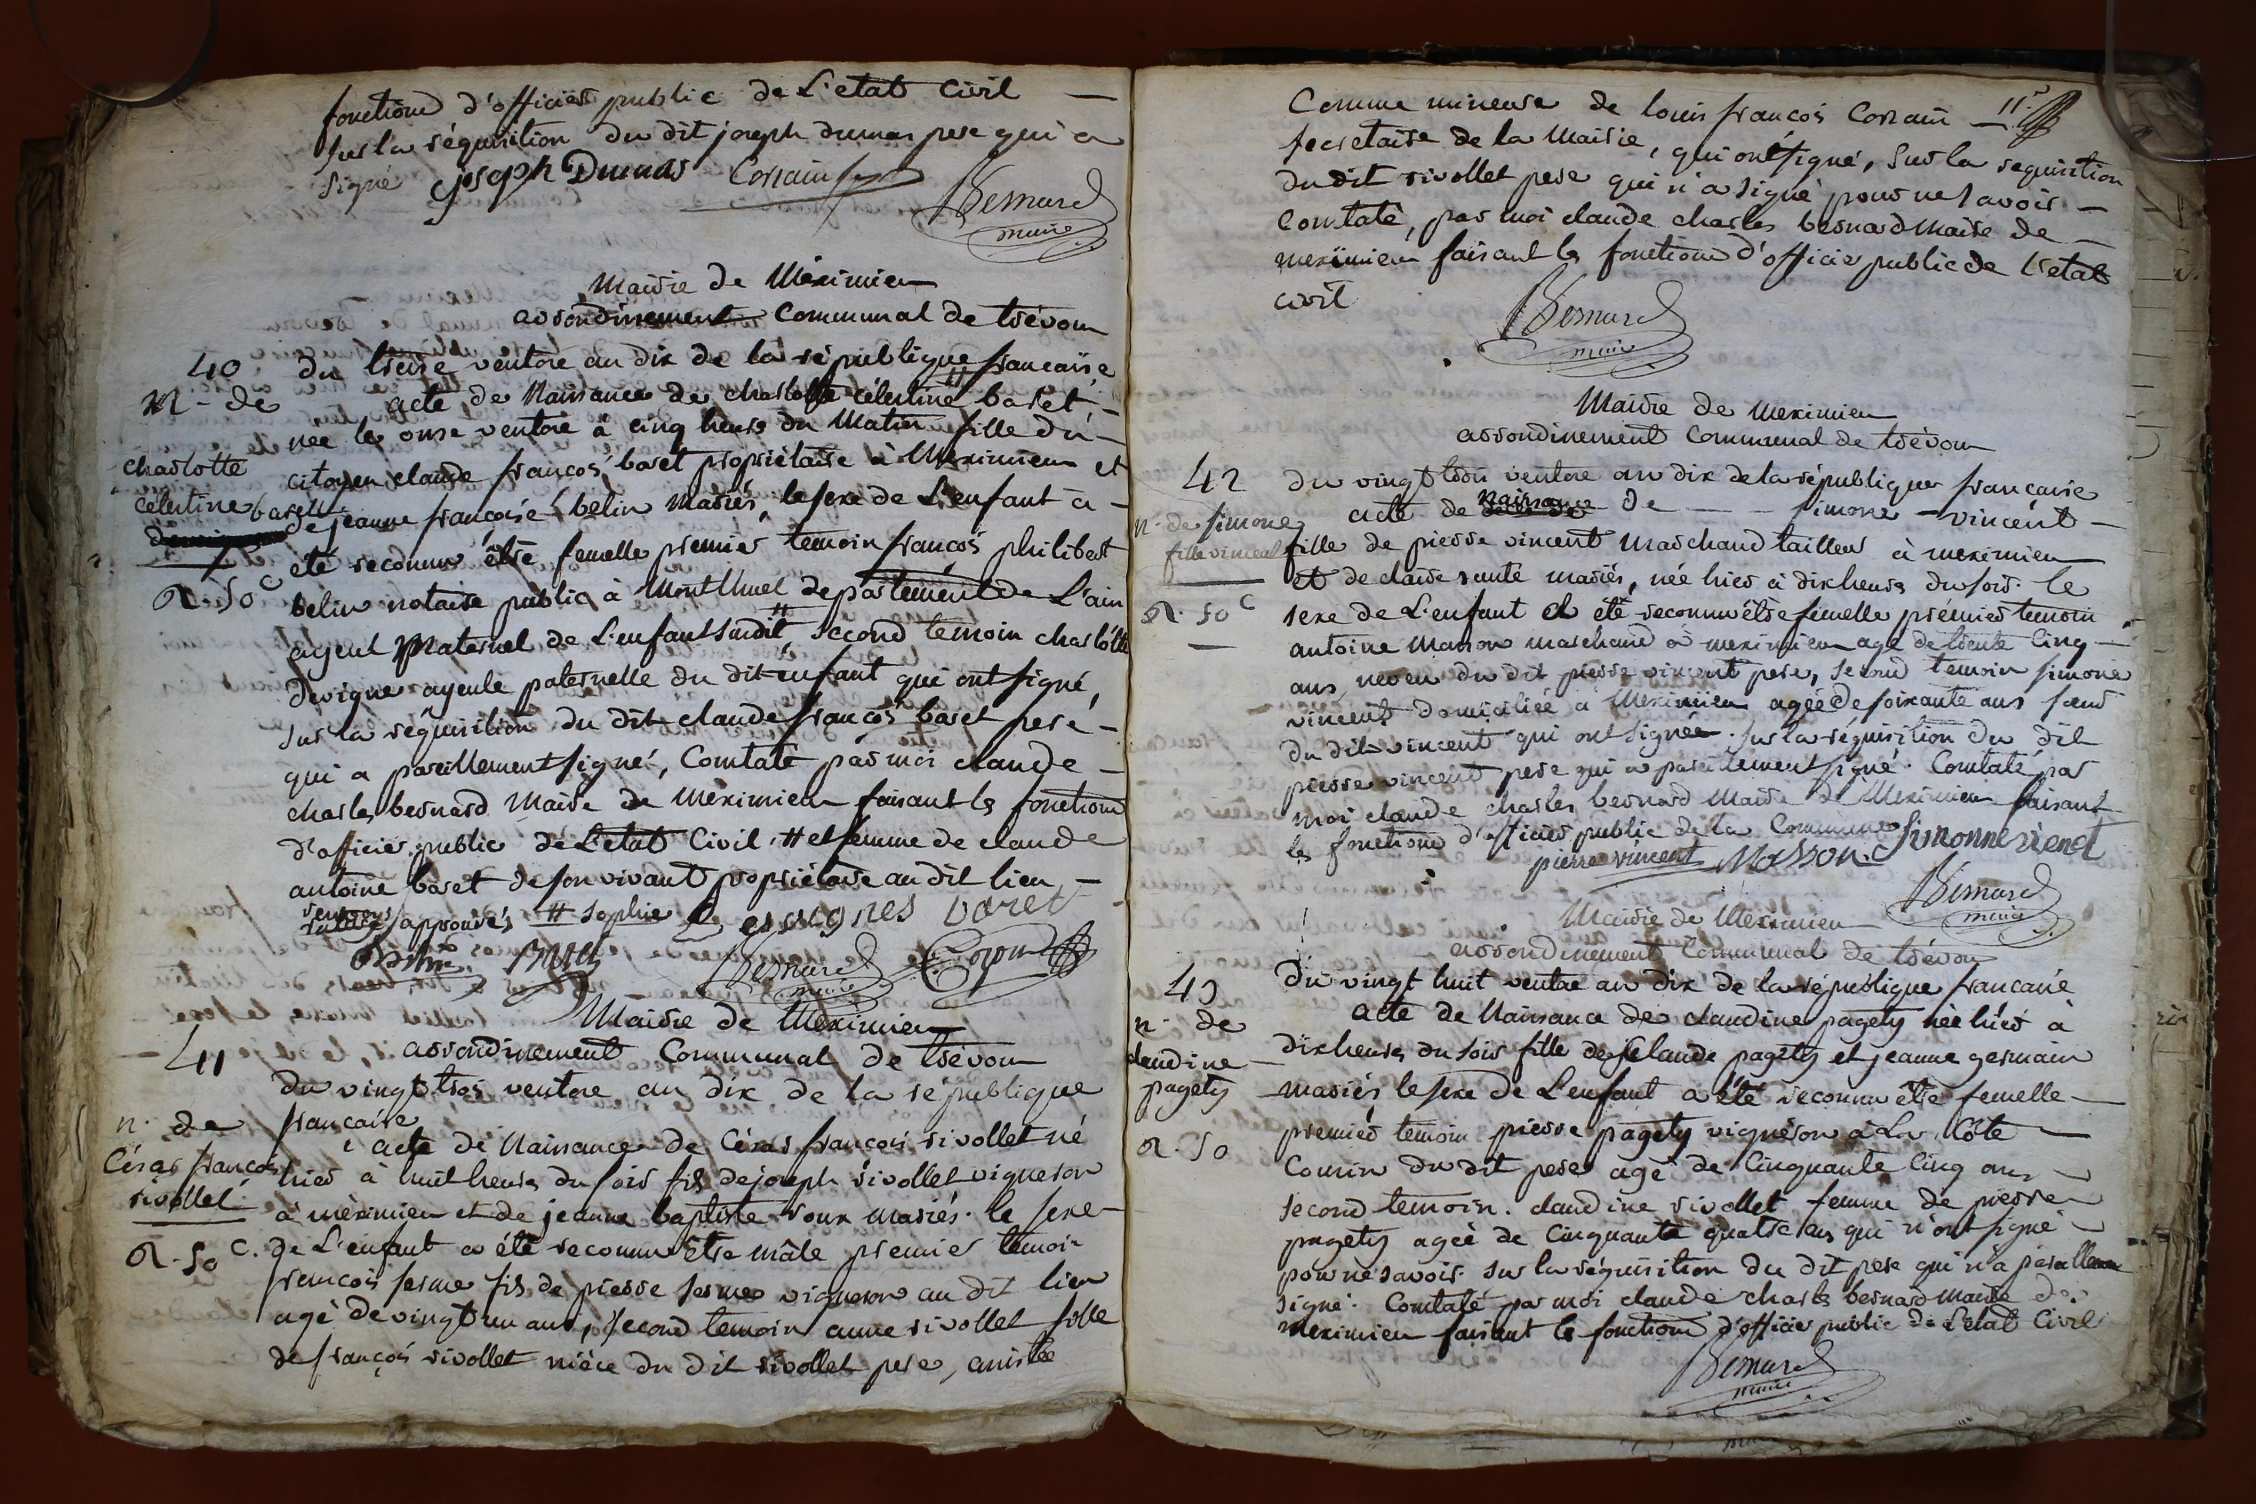 fonctions d'officier public de L'etat Civil —
sur la réquisition du dit joseph dumas pere qui a
signé Joseph Dumas Corsain
Bernard
maire
Mairie de Méximieu
arrondinement Communal de trévoux
40
Du treize ventose an dix de la république française
n. de
acte de Naissance de charlotte # célestine baret
née le onze ventose à cinq heures du Matin fille du
charlotte
célestine baret
citoyen claude françois baret propriétaire à Meximieu et
de jeanne françoise belin mariés, le sexe de L'enfant a
été reconnu être femelle premier temoin françois philibert
50 c
belin notaire public à Montluel departement de L'ain
ayeul Maternel de L'enfant susdit, second temoin charlotte #
devigne ayeule paternelle du dit enfant qui ont signé,
sur la réquisition du dit claude françois baret pere
qui a pareillement signé, Constaté par moi claude
charles bernard Maire de Meximieu faisant les fonctions
d'officier public de L'etat Civil. # et femme de claude
antoine baret de son vivant propriétaire au dit lieu —
renvoys approuvés # sophie
baret
Bernard
maire
Mairie de Méximieu
arrondinement Communal de trévoux
41
Du vingt trois ventose an dix de la république
française
n. de
César françois
rivollet
acte de Naissance de César françois rivollet né
hier à huit heures du soir fils de joseph rivollet vigneron
à méximieu et de jeanne baptiste roux mariés. le sexe
50 c.
de L'enfant a été reconnu Etre mâle premier temoin
françois ferme fils de pierre ferme vigneron au dit lieu
agé de vingt un ans, second temoin anne rivollet fille
de françois rivollet nièce du dit rivollet pere, assistée
Comme mineure de louis françois Corsain 11.
secretaire de la Mairie, qui ont signé, sur la requisition
du dit rivollet pere qui n'a signé pour ne savoir —
Constaté, par moi claude charles bernard Maire de —
meximieu faisant les fonctions d'officier public de L'etat
civil
Bernard
maire
Mairie de Meximieu
arrondinement Communal de trévoux
42
Du vingt trois ventose an dix de la république française
n. de simone
fille vincent
acte de naissance de — — simone — vincent —
fille de pierre vincent marchand tailleur à meximieu
et de claire mariés, née hier à dix heures du soir. le
50 c
sexe de L'enfant a été reconnu être femelle prémier temoin
antoine Masson marchand à meximieu agé de trente cinq —
ans neveu du dit pierre vincent pere, second temoin simone
vincent domiciliée à Meximieu agée de soixante ans soeur
du dit vincent qui ont signée. sur la réquisition du dit
pierre vincent pere qui a pareillement signé. Constaté par
moi claude charles bernard Maire de Meximieu faisant
les fonctions d'officier public de la Commune
pierre vincent Masson. Simonne
Bernard
maire
Mairie de Meximieu
arrondinement Communal de trévoux
43
Du vingt huit ventose an dix de la république française
n. de
claudine
pagety
acte de Naissance de claudine pagety née hier à
dix heures du soir fille de Claude pagety et jeanne germain
mariés le sexe de L'enfant a été reconnu être femelle —
50
premier temoin pierre pagety vigneron à La Côte
Cousin du dit pere agé de Cinquante Cinq ans
second temoin. claudine rivollet femme de pierre
pagety agée de Cinquante quatre ans qui n'ont signé
pour ne savoir. sur la réquisition du dit pere qui n'a pareillement
signé. Constaté par moi claude charles bernard maire de
meximieu faisant les fonctions d'officier public de L'etat Civil
Bernard
maire